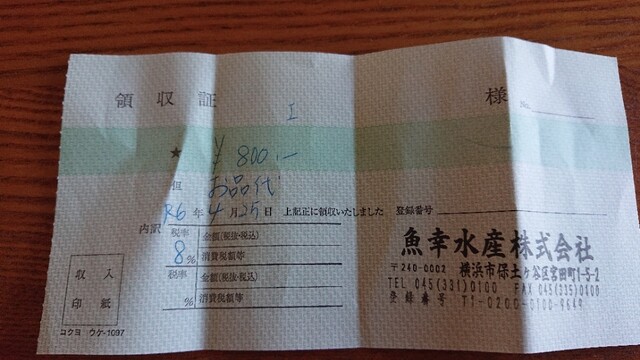 領収証 様 No.
★ ¥800.-
但 お品代
R6年4月25日 上記正に領収いたしました 登録番号
内訳
税率 金額(税抜・税込)
8% 消費税額等
税率 金額(税抜・税込)
% 消費税額等
収入
印紙
コクヨ ウケ-1097
魚幸水産株式会社
〒240-0002 横浜市保土ヶ谷区宮田町1-5-2
TEL 045(331)0100 FAX 045(335)0100
登録番号 T1-0200-0100-9649